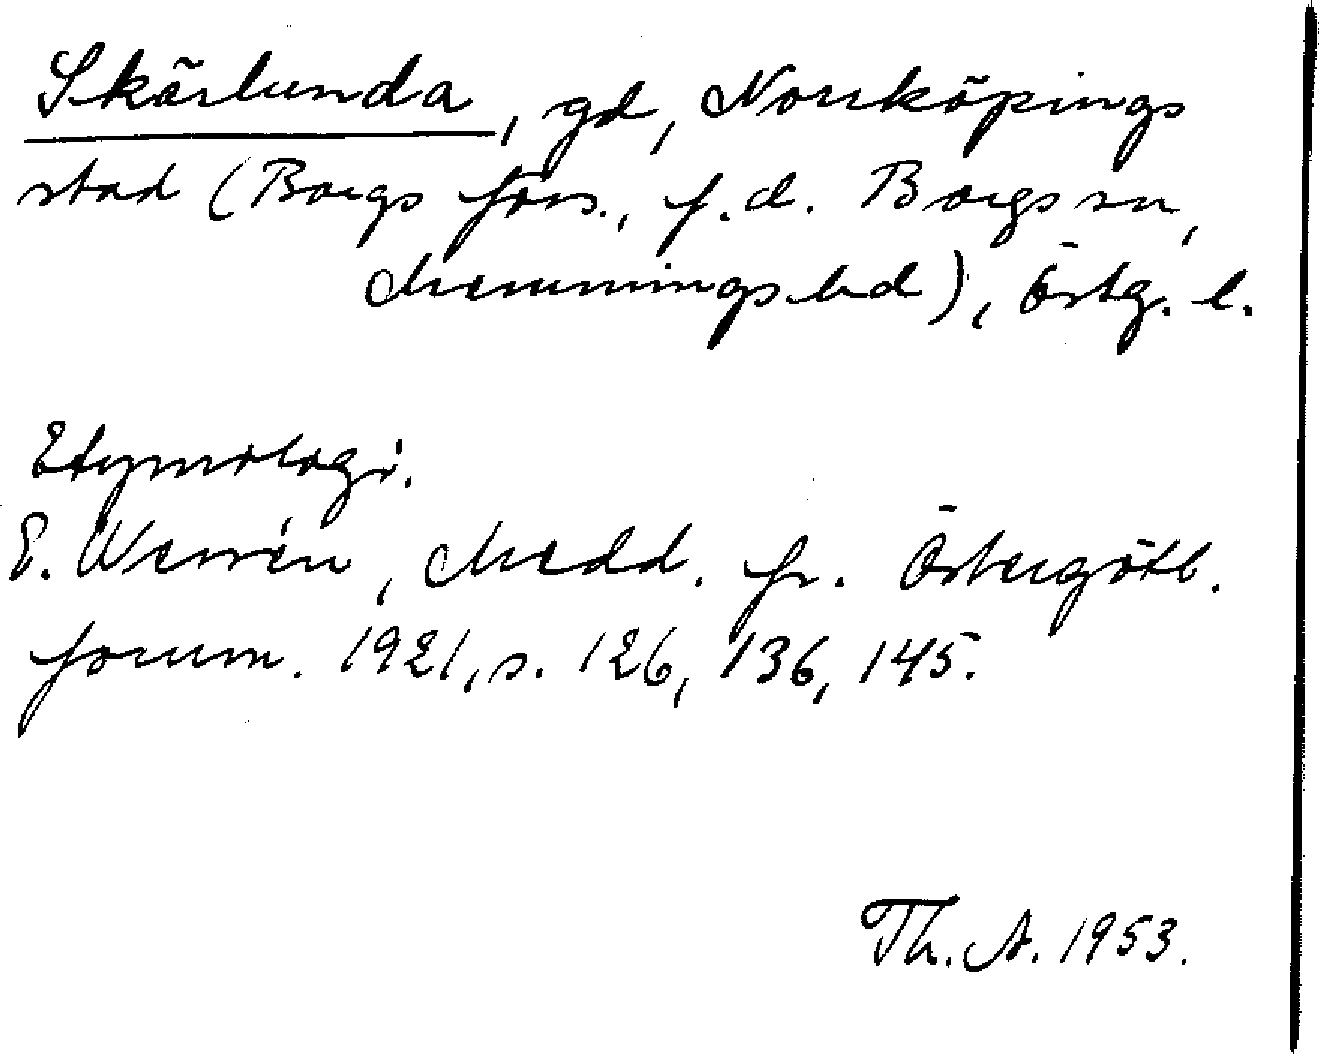 Skärlunda, gd, Norrköpings
stad (Borgs förs., f.d. Borgs sn,
Memmings hd), Östg. l.
Etymologi.
E. Wessén, Medd. fr. Östergötl.
fornm. 1921, s. 126, 136, 145.
Th. A. 1953.